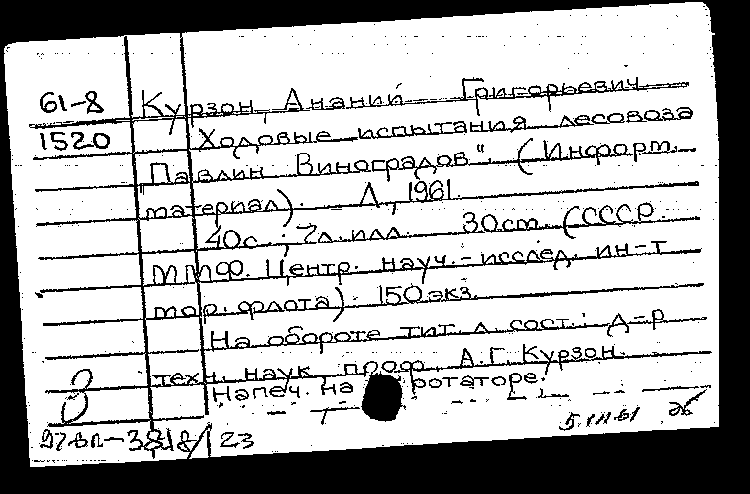 61-8 Курзон, Ананий Григорьевич
1520 Ходовые испытания лесовоза
"Павлин Виноградов". (Информ.
материал). Л., 1961.
40с.; 7л. илл. 30см. (СССР.
ММФ. Центр. науч.-исслед. ин-т
мор. флота). 150 экз.
На обороте тит. л. сост.: д-р
техн. наук проф. А.Г. Курзон.
Напеч. на ротаторе.
5.III.61